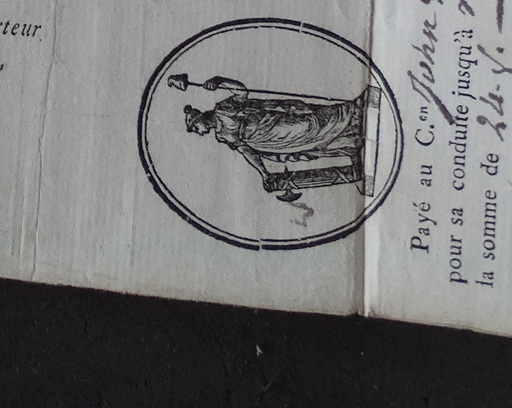 rteur.
Payé au C.en John
pour sa conduite jusqu'à
la somme de 24.